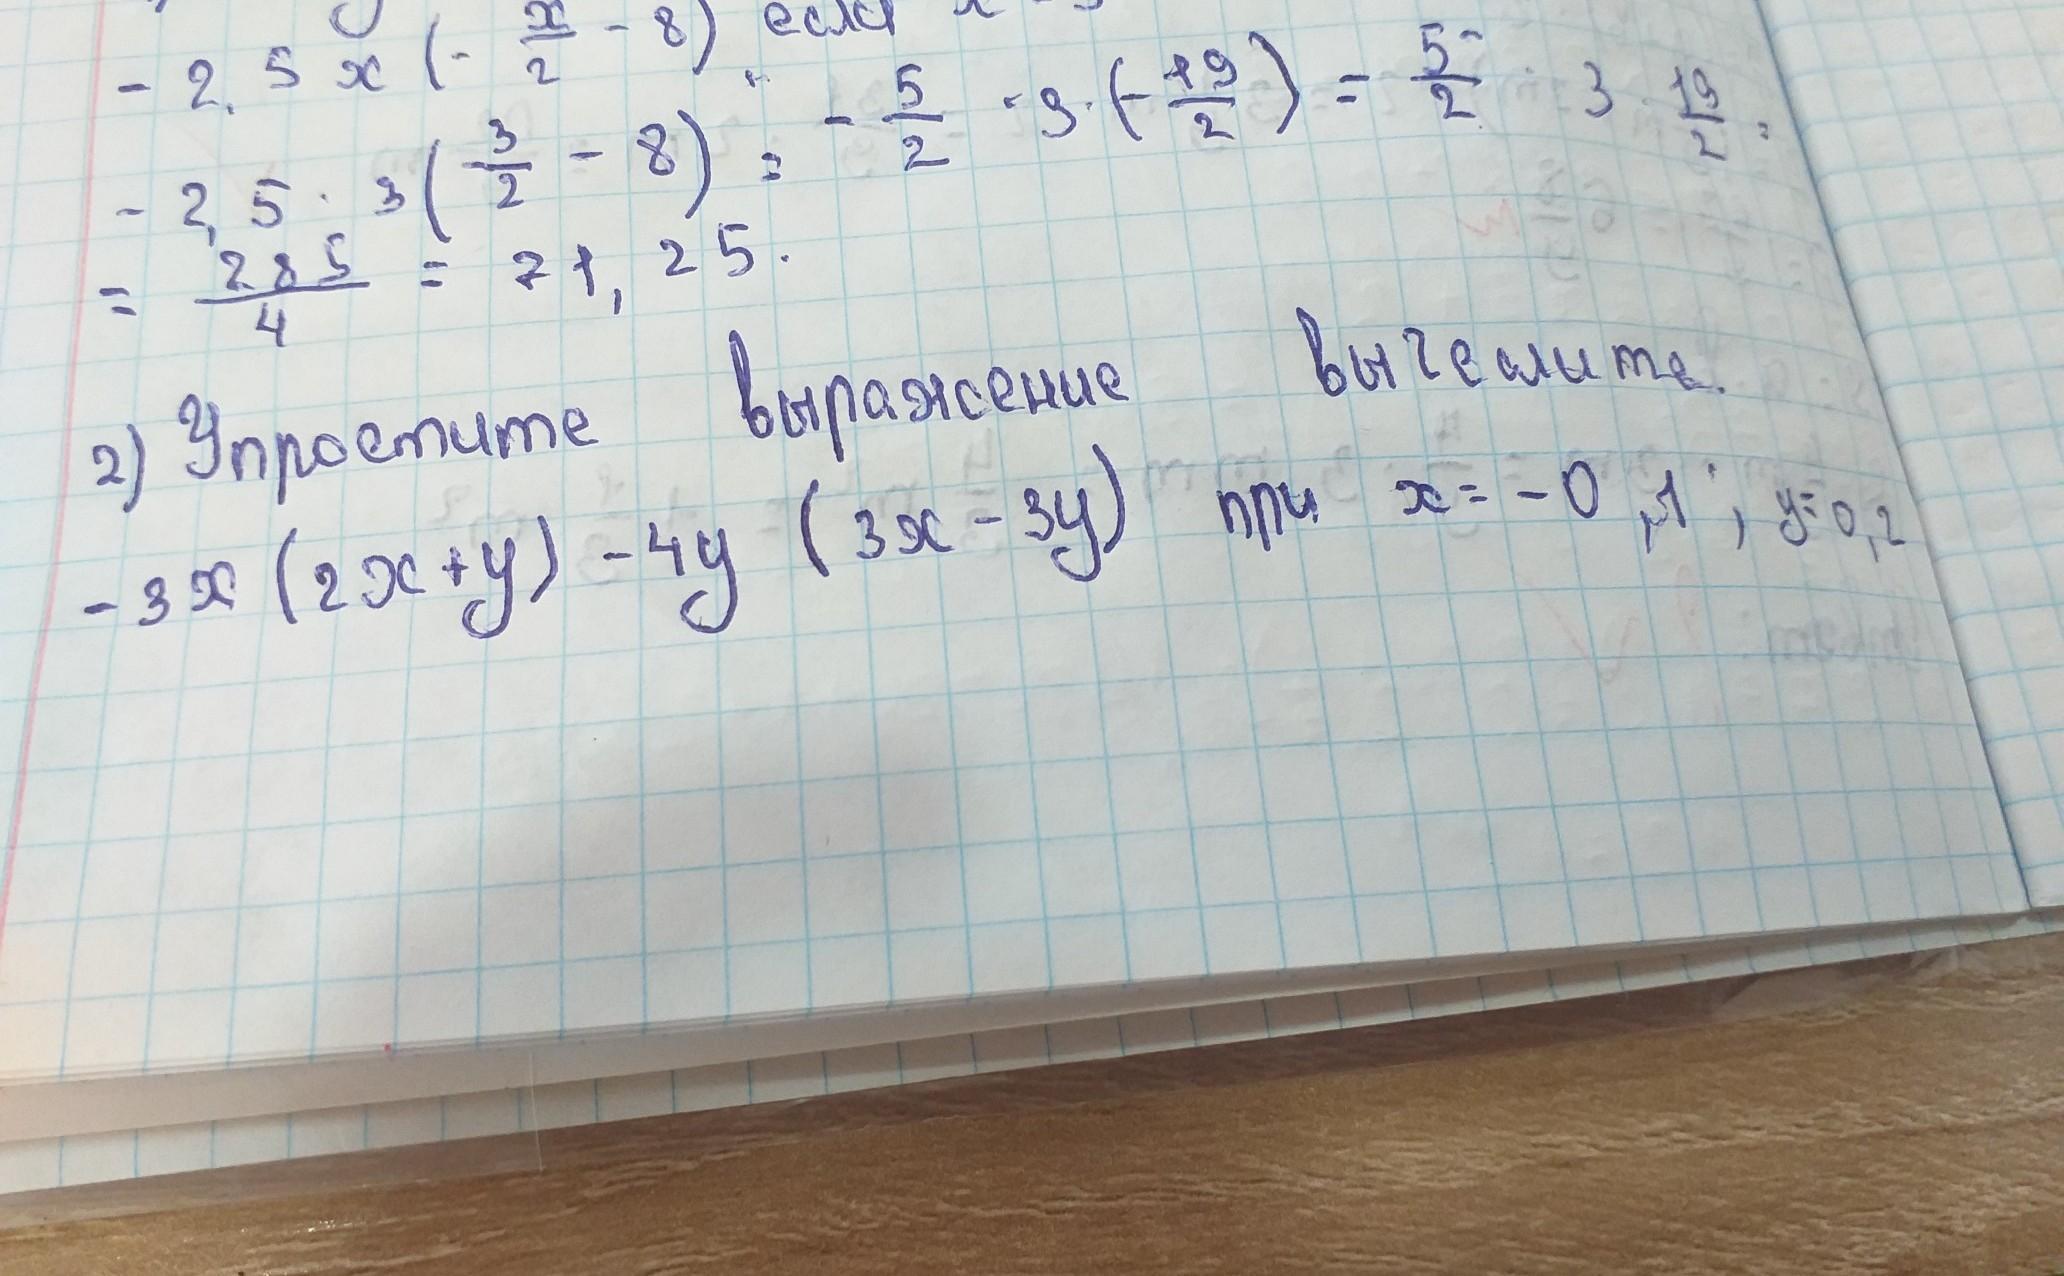 - 2,5x(- x/2 - 8) если x
- 2,5 · 3(- 3/2 - 8) = - 5/2 · 3 · (- 19/2) = 5/2 · 3 · 19/2 =
= 285/4 = 71,25.
2) Упростите выражение вычеслите.
- 3x (2x+y) - 4y (3x - 3y) при x = -0,1 ; y=0,2